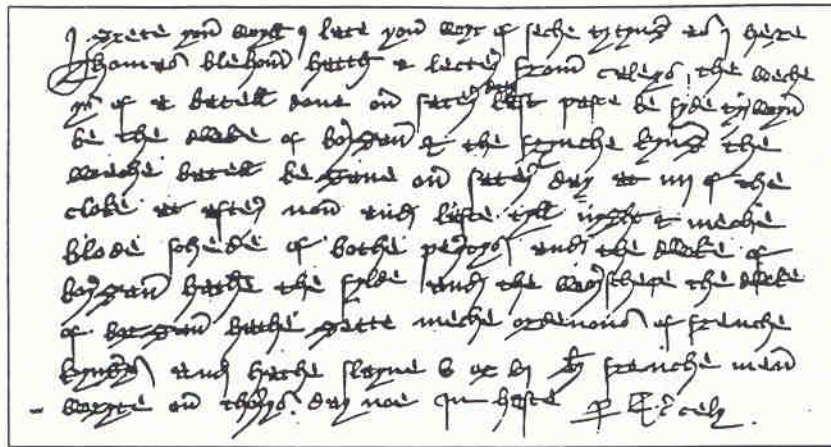 I grete you wyll I late you wyt of seche tytyng as I here
Thomas blehom hatth a letter from caleys the weche
ys of a batell done on sater day last paste be syde tyrwyn
be the dwke of borgan & the frynche kyng the
weche batell be gane on sater day at iiij of the
cloke at after non and laste tyll nyght & meche
blode schede of bothe pertys and the dwke of
borgan hathe the fylde and the worschepe the dwke
of borgan hathe gette meche ordenons of frenche
kyngys and hathe slayne v or vj ml frenche men
wryte on thorys day noe in haste p Ric cely